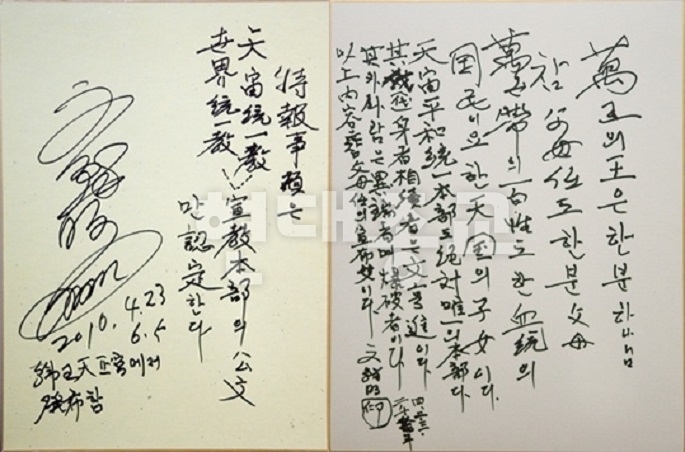 萬王의王은한분하나님
참父母任도한분父母
萬世帶의百姓도한血統의
国民이요한天国의子女이다
天宙平和統一本部도絶対唯一의本部다
其代身者相続者는文亨進이다
其外사람은異端者며爆破者이다
以上内容은父母任의宣布文이다 文鮮明
特報事項은
天宙統一教
世界統一教 宣教本部의公文
만認定한다
2010. 4.23
6.5
天正宮에서
布함
현대종교